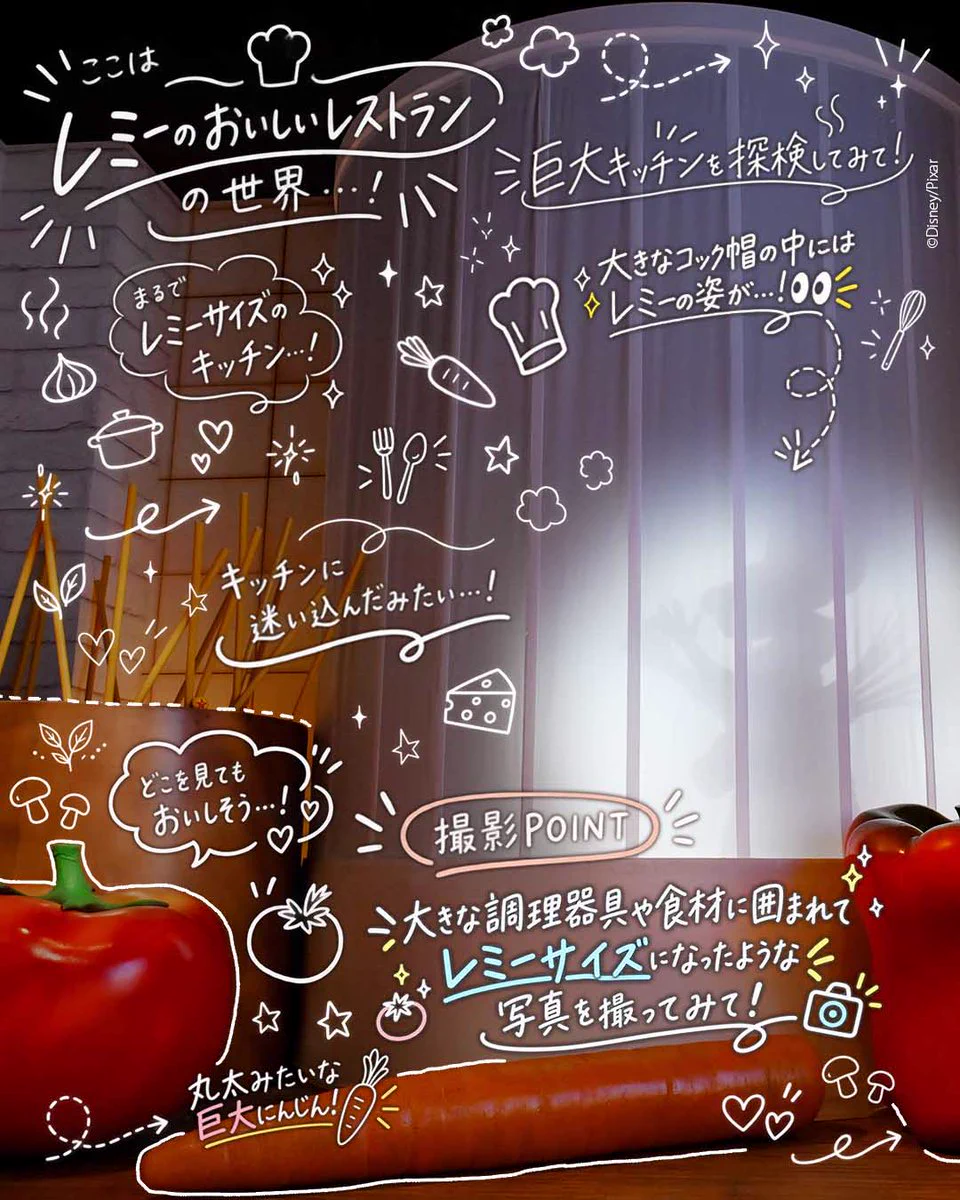 ここは
レミーのおいしいレストラン
の世界…!
巨大キッチンを探検してみて!
©Disney/Pixar
大きなコック帽の中には
レミーの姿が…!
まるで
レミーサイズの
キッチン…!
キッチンに
迷い込んだみたい…!
どこを見ても
おいしそう…!
撮影POINT
大きな調理器具や食材に囲まれて
レミーサイズになったような
写真を撮ってみて!
丸太みたいな
巨大にんじん!